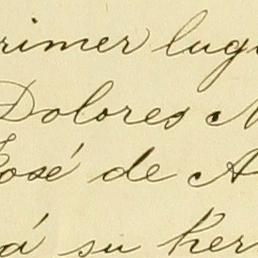 rimer lug
Dolores N
José de A
á su her